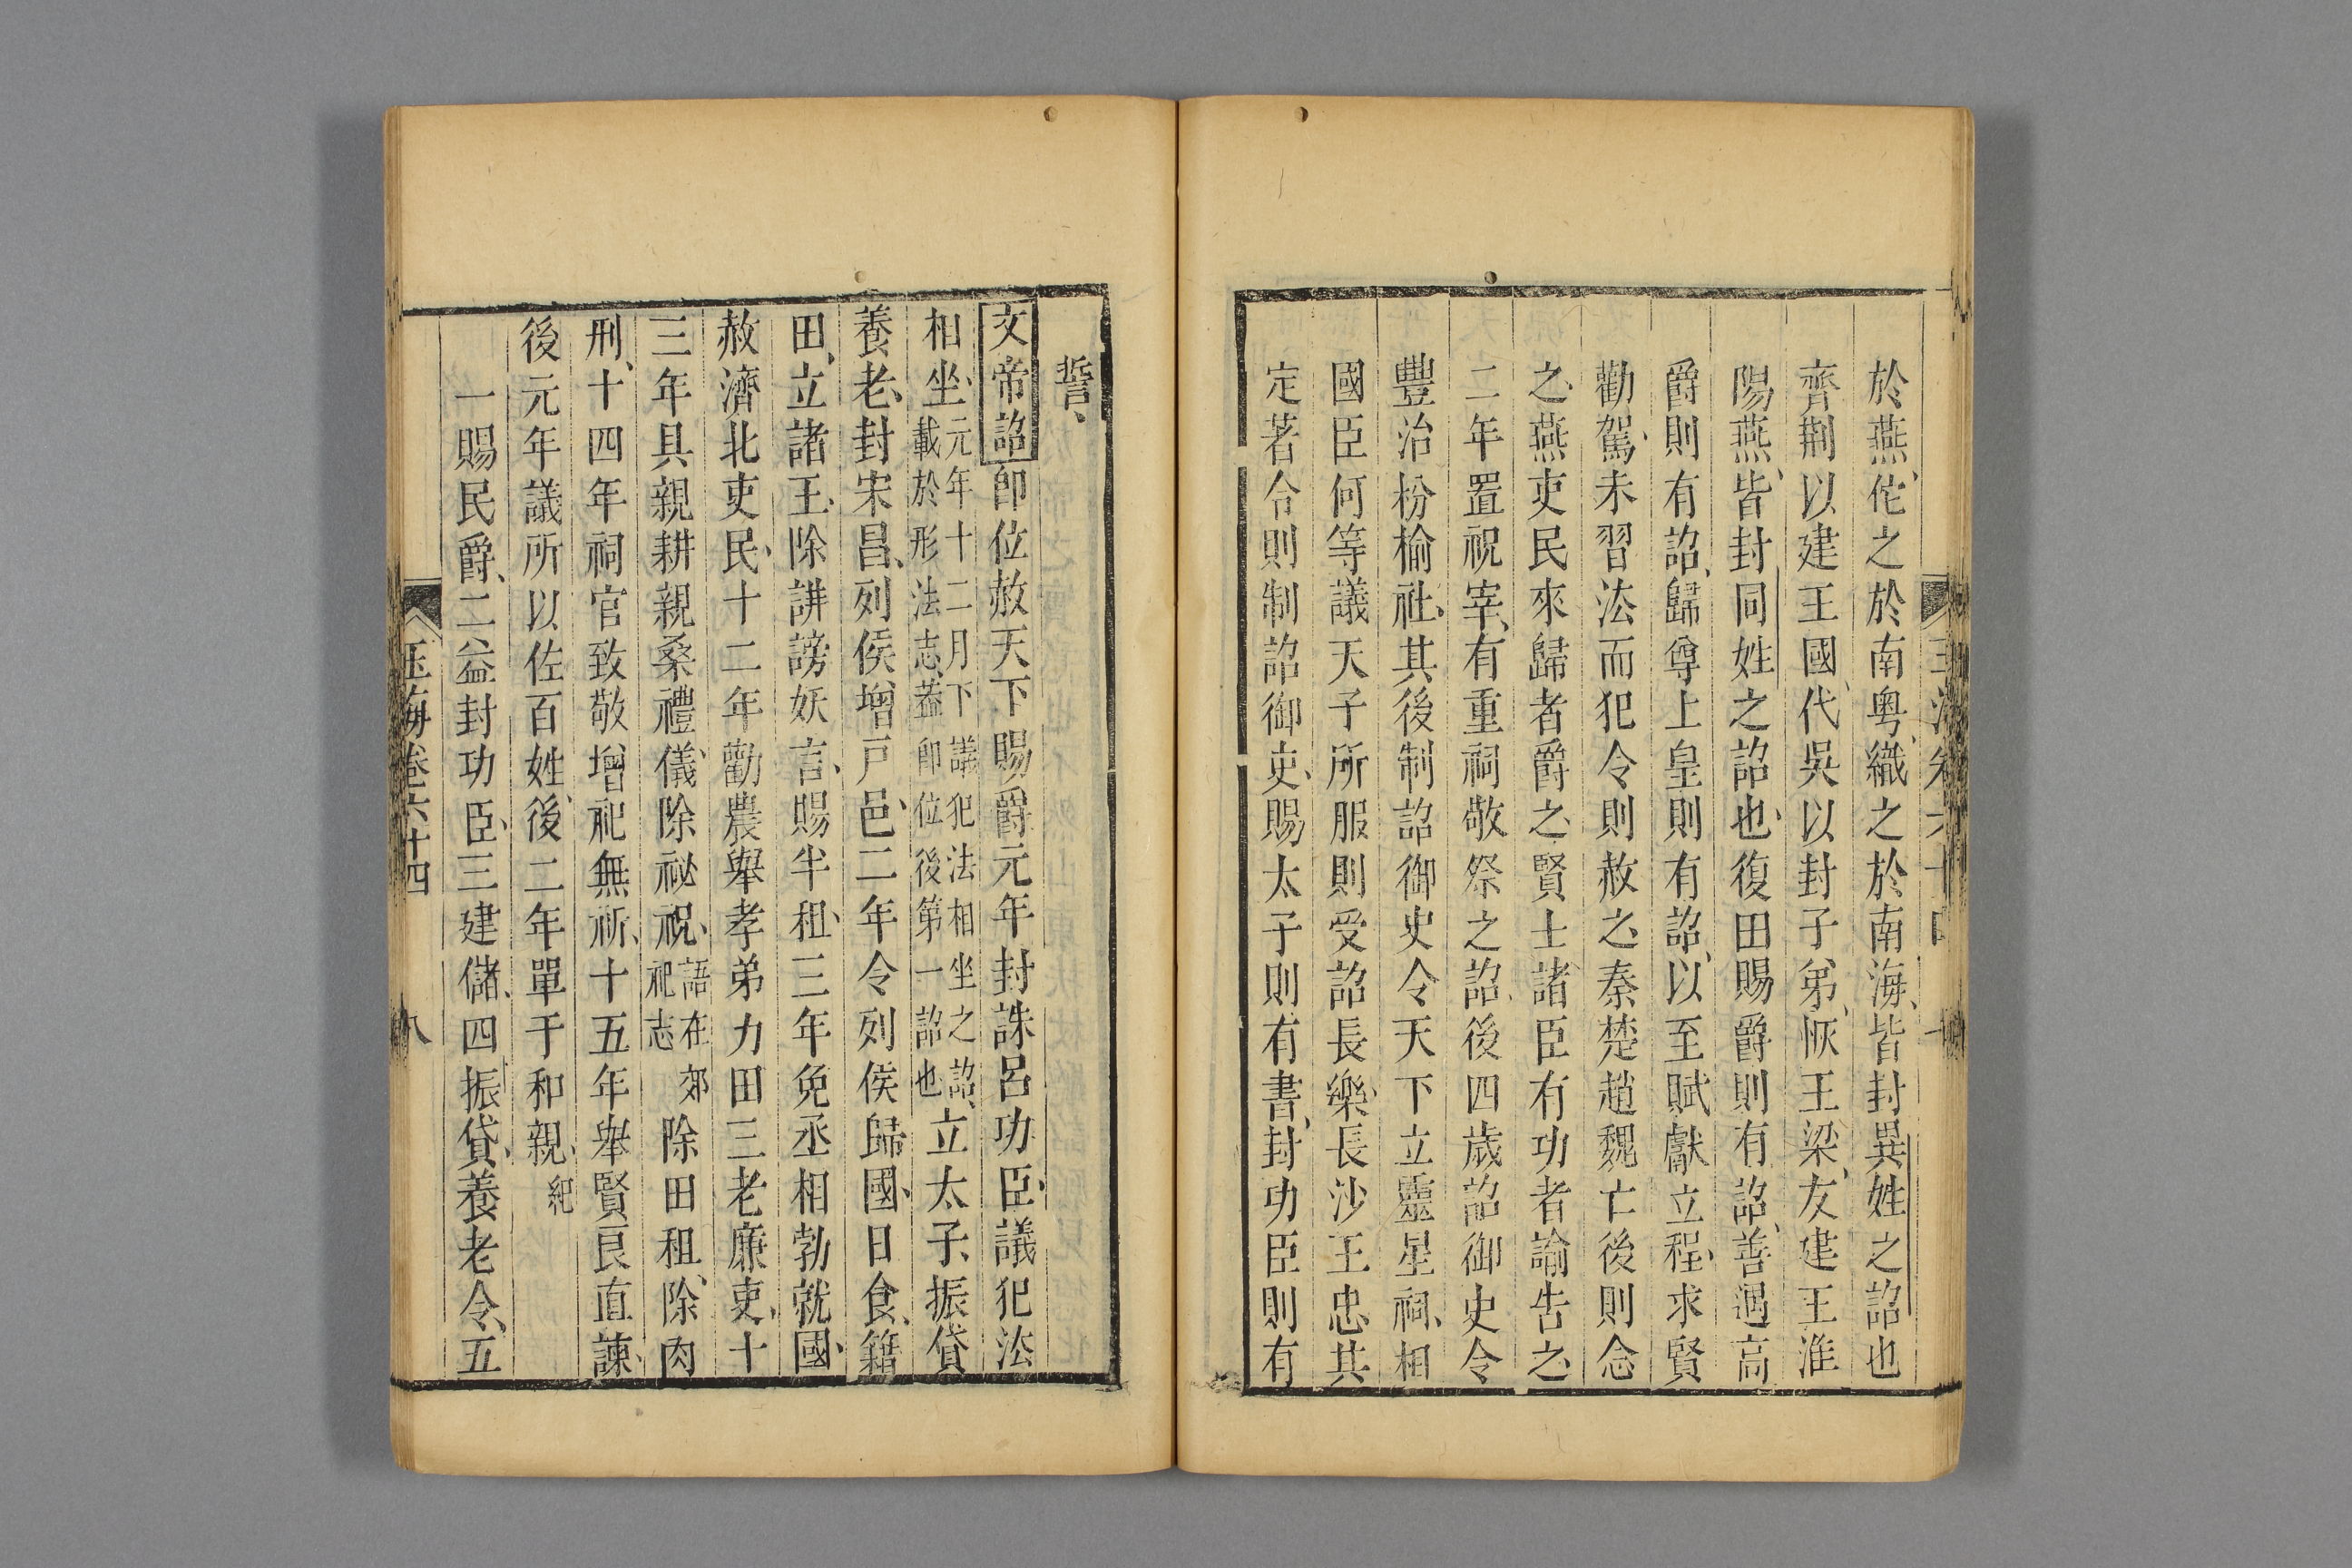 於燕、佗之於南粵、織之於南海、皆封異姓之詔也
齊荆以建王國、代吳以封子弟、恢王梁、友建王淮
陽燕、皆封同姓之詔也、復田賜爵則有詔、善遇高
爵則有詔、歸尊上皇則有詔、以至賦獻立程、求賢
勸駕、未習法而犯令則赦之、秦楚趙魏亡後則念
之、燕吏民來歸者爵之、賢士諸臣有功者諭告之、
二年置祝宰、有重祠敬祭之詔、後四歲詔御史令
豐治枌榆社、其後制詔御史令天下立靈星祠、相
國臣何等議天子所服則受詔長樂、長沙王忠、其
定著令則制詔御史、賜太子則有書、封功臣則有
誓、
文帝詔即位赦天下賜爵元年封誅呂功臣、議犯法
相坐、元年十二月下議犯法相坐之詔、載於形法志、蓋即位後第一詔也、立太子、振貸
養老、封宋昌、列侯、增戸邑、二年令列侯歸國、日食、籍
田、立諸王、除誹謗妖言、賜半租、三年免丞相勃就國、
赦濟北吏民、十二年勸農舉孝弟力田三老廉吏、十
三年具親耕親桑禮儀、除祕祝、語在郊祀志除田租、除肉
刑、十四年祠官致敬增祀無祈、十五年舉賢良直諫、
後元年議所以佐百姓、後二年單于和親、紀
一賜民爵、二益封功臣、三建儲、四振貸、養老令、五
玉海卷六十四
八